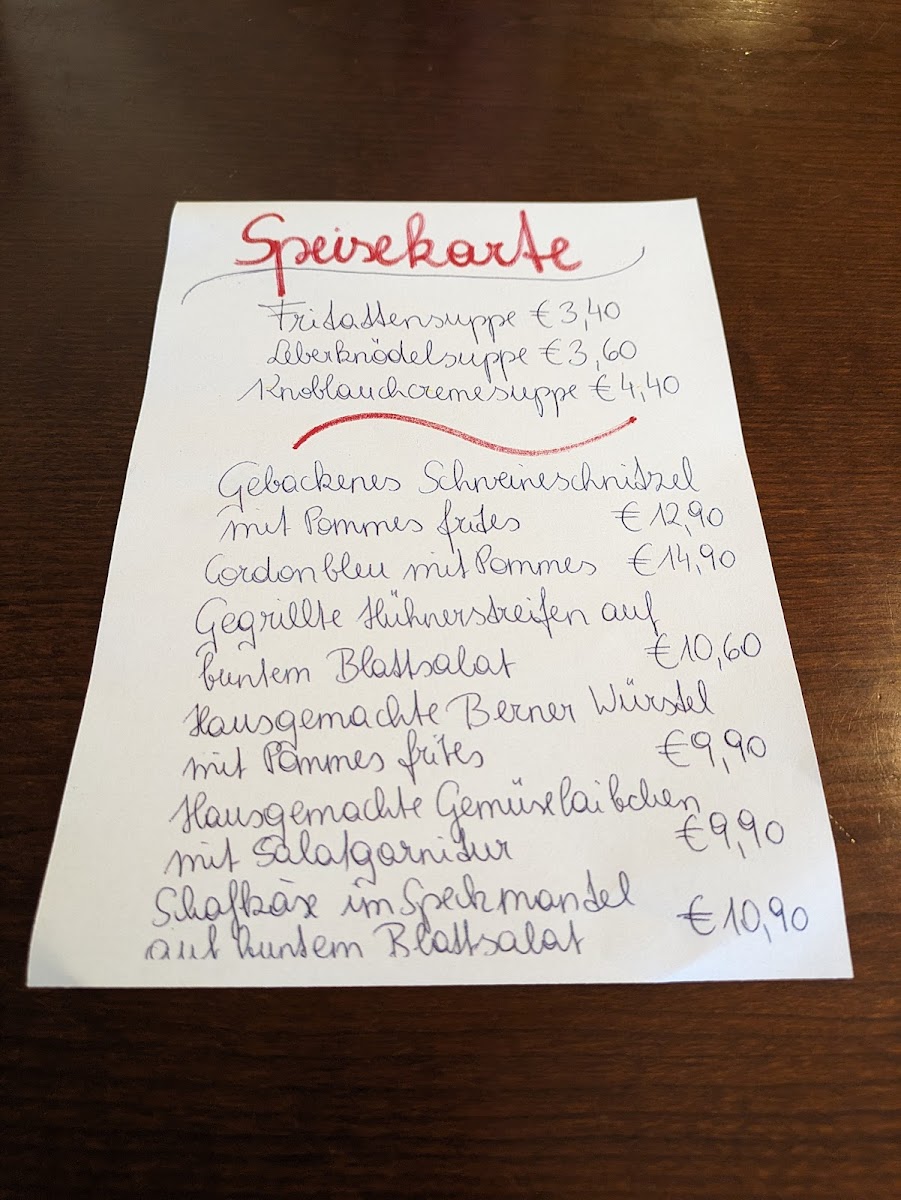 Speisekarte
Fritattensuppe € 3,40
Leberknödelsuppe € 3,60
Knoblauchcremesuppe € 4,40
Gebackenes Schweineschnitzel
mit Pommes frites € 12,90
Cordon bleu mit Pommes € 14,90
Gegrillte Hühnerstreifen auf
buntem Blattsalat € 10,60
Hausgemachte Berner Würstel
mit Pommes frites € 9,90
Hausgemachte Gemüselaibchen
mit Salatgarnidur € 9,90
Schafkäse im Speckmandel
auf buntem Blattsalat € 10,90